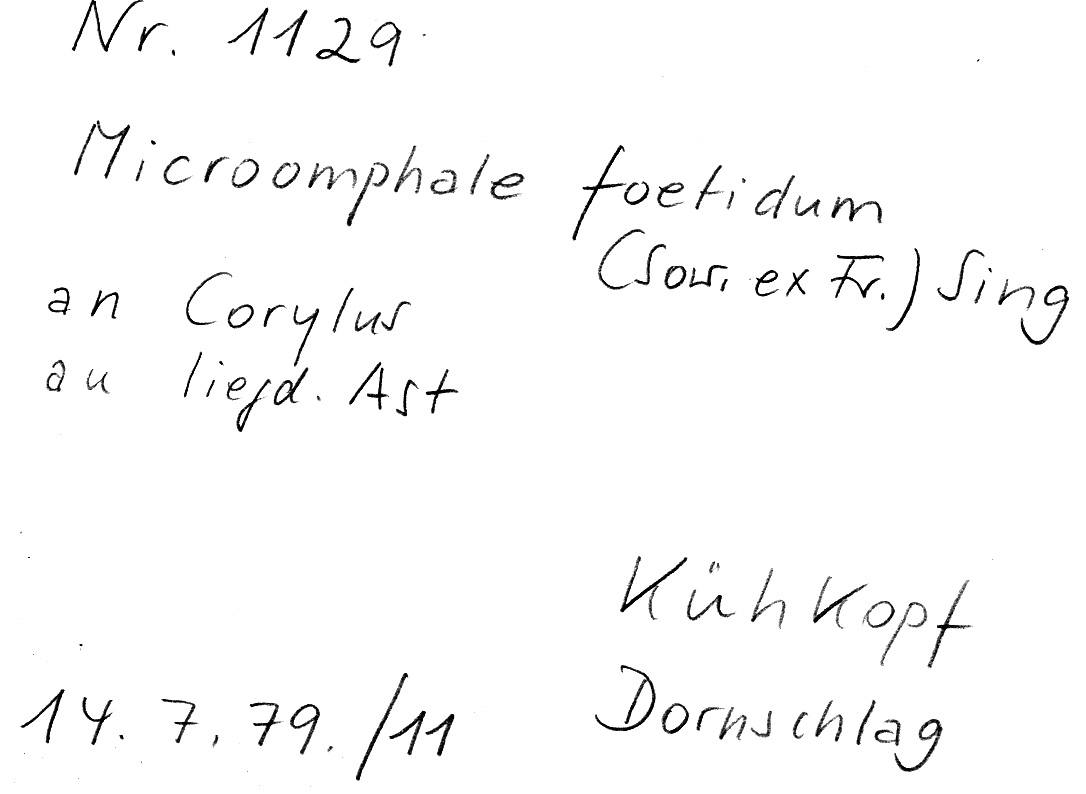 Nr. 1129
Microomphale foetidum
(Sow. ex Fr.) Sing
an Corylus
an liegd. Ast
Kühkopf
Dornschlag
14. 7. 79. /11